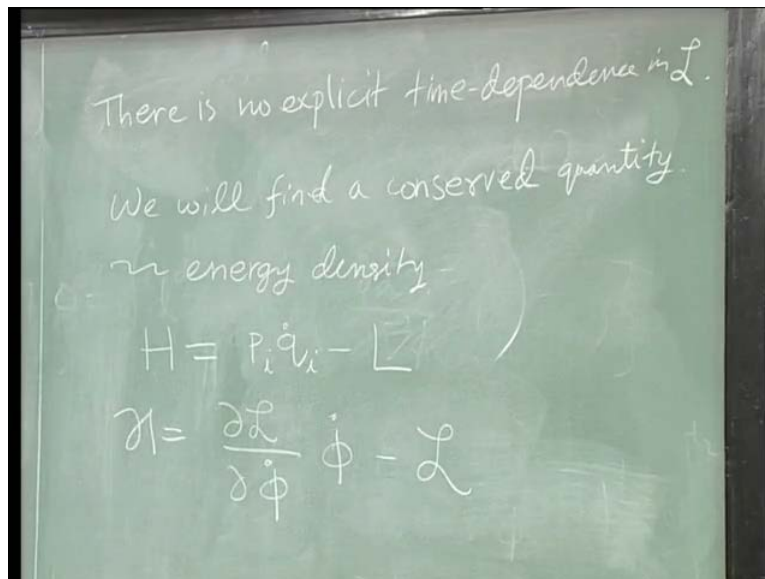 There is no explicit time-dependence in ℒ.
We will find a conserved quantity.
~ energy density
H = pᵢ q̇ᵢ - L
ℋ = ∂ℒ/∂φ̇ φ̇ - ℒ